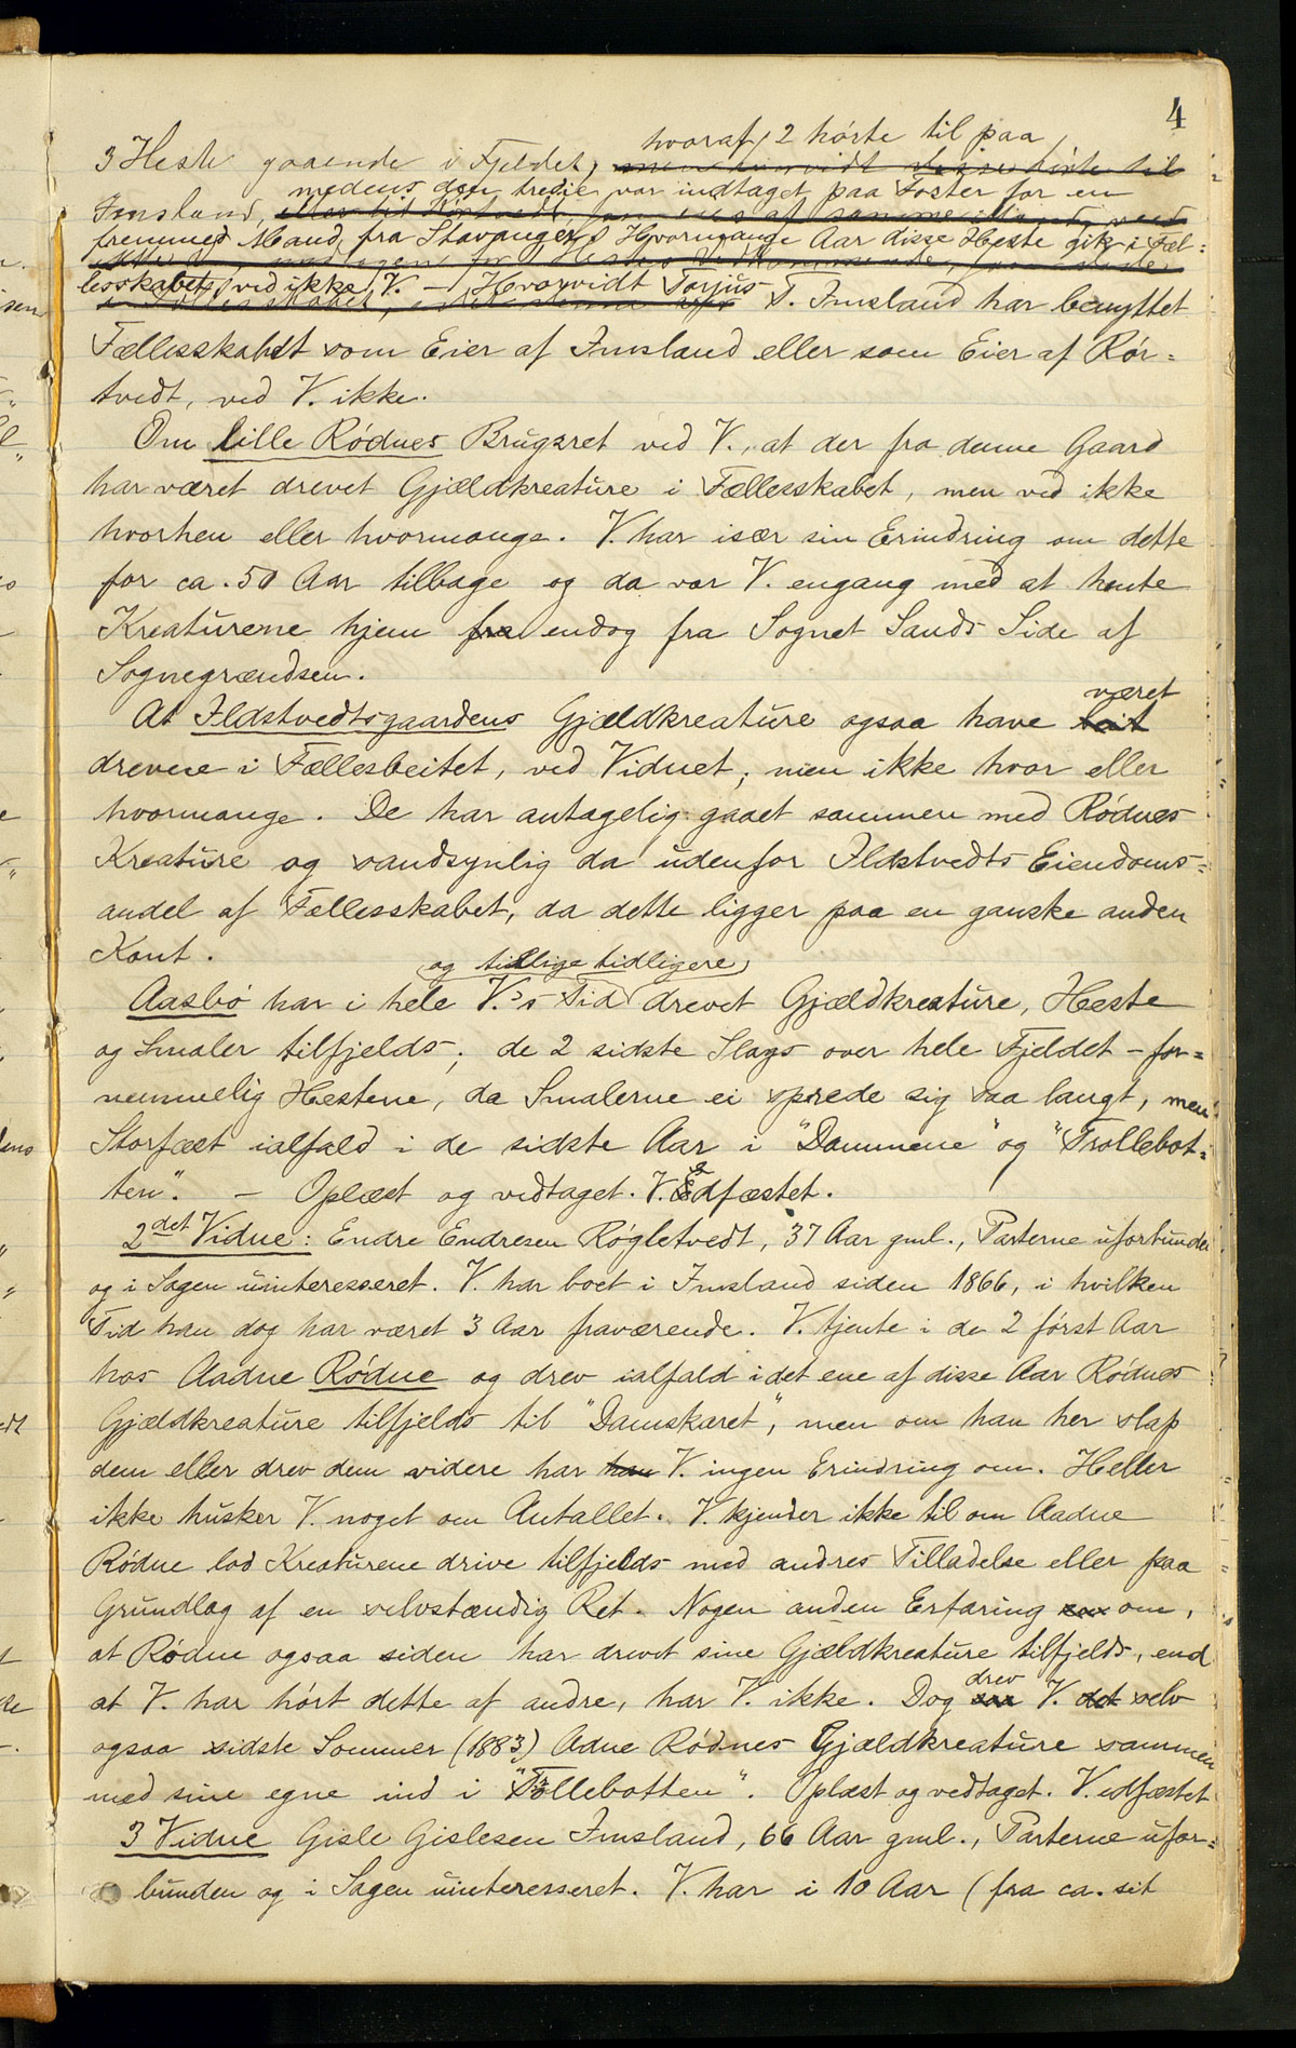 4
hvoraf 2 hörte til paa
3 Heste gaaende i Fjeldet, men hvorvidt disse hörte til
medens den tredie var indtaget paa Foster for en
Imsland,
fremmed Mand fra Stavanger. Hvormange Aar disse Heste gik i Fæl=
lesskabet, ved ikke V. — Hvorvidt Torjus
T. Imsland har benyttet
Fællesskabet som Eier af Imsland eller som Eier af Rör=
tvedt, ved V. ikke.
Om lille Rödnes Brugsret ved V., at der fra denne Gaard
har været drevet Gjældkreature i Fællesskabet, men ved ikke
hvorhen eller hvormange. V. har især sin Erindring om dette
for ca. 50 Aar tilbage og da var V. engang med at hente
Kreaturene hjem fra endog fra Sognet Sands Side af
Sognegrændsen.
været
At Ilstvedtsgaardens Gjældkreature ogsaa have
drevne i Fællesbeitet, ved Vidnet, men ikke hvor eller
hvormange. De har antagelig gaaet sammen med Rödnes
Kreature og sandsynlig da udenfor Ilstvedts Eiendoms=
andel af Fællesskabet, da dette ligger paa en ganske anden
Kant.
og tillige tidligere
Aasbö har i hele V.'s Tid drevet Gjældkreature, Heste
og Smaler tilfjelds; de 2 sidste Slags over hele Fjeldet – for=
nemmelig Hestene, da Smalerne ei sprede sig saa langt, men
Storfæet ialfald i de sidste Aar i "Dammene" og "Trollebot=
ten". — Oplæst og vedtaget. V. Edfæstet.
2det Vidne: Endre Endresen Rögletvedt, 37 Aar gml., Parterne uforbunden
og i Sagen uinteresseret. V. har boet i Imsland siden 1866, i hvilken
Tid han dog har været 3 Aar fraværende. V. tjente i de 2 först Aar
hos Aadne Rödne og drev ialfald i det ene af disse Aar Rödnes
Gjældkreature tilfjelds til "Damskaret", men om han her slap
dem eller drev dem videre har han V. ingen Erindring om. Heller
ikke husker V. noget om Antallet. V. kjender ikke til om Aadne
Rödne lod Kreaturene drive tilfjelds med andres Tilladelse eller paa
Grundlag af en selvstændig Ret. Nogen anden Erfaring om,
at Rödne ogsaa siden har drevet sine Gjældkreature tilfjelds, end
drev
at V. har hört dette af andre, har V. ikke. Dog saa V. det selv
ogsaa sidste Sommer (1883) Adne Rödnes Gjældkreature sammen
med sine egne ind i "Tröllebotten". Oplæst og vedtaget. V. edfæstet
3 Vidne Gisle Gislesen Imsland, 66 Aar gml., Parterne ufor=
bunden og i Sagen uinteresseret. V. har i 10 Aar (fra ca. sit